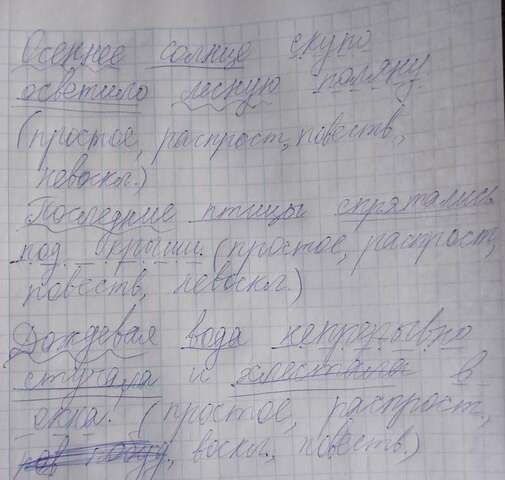 Осеннее солнце скупо
осветило лесную поляну
(простое, распрост, повеств.,
невоскл.)
Последние птицы спрятались
под крыши. (простое, распрост,
повеств, невоскл.)
Дождевая вода непрерывно
стучала и хлестала в
окна. (простое, распрост,
воскл., повеств.)